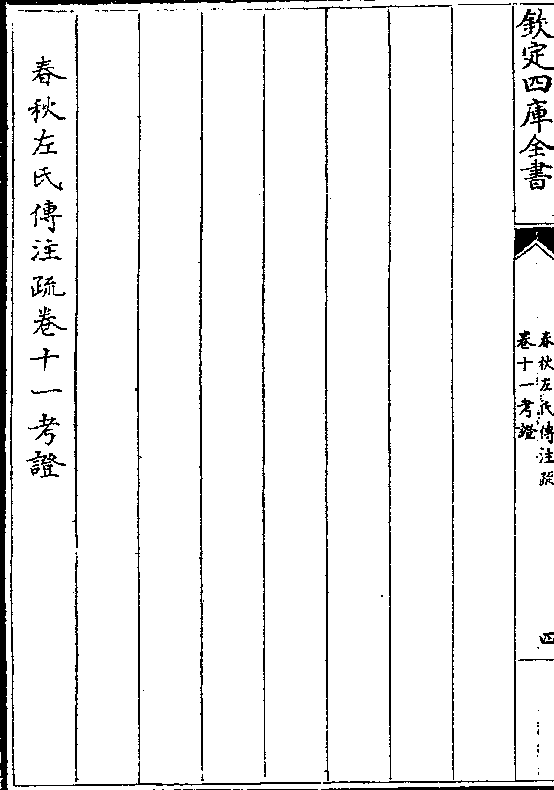 欽定四庫全書
春秋左氏傳注疏
卷十一考證
四
春秋左氏傳注疏卷十一考證